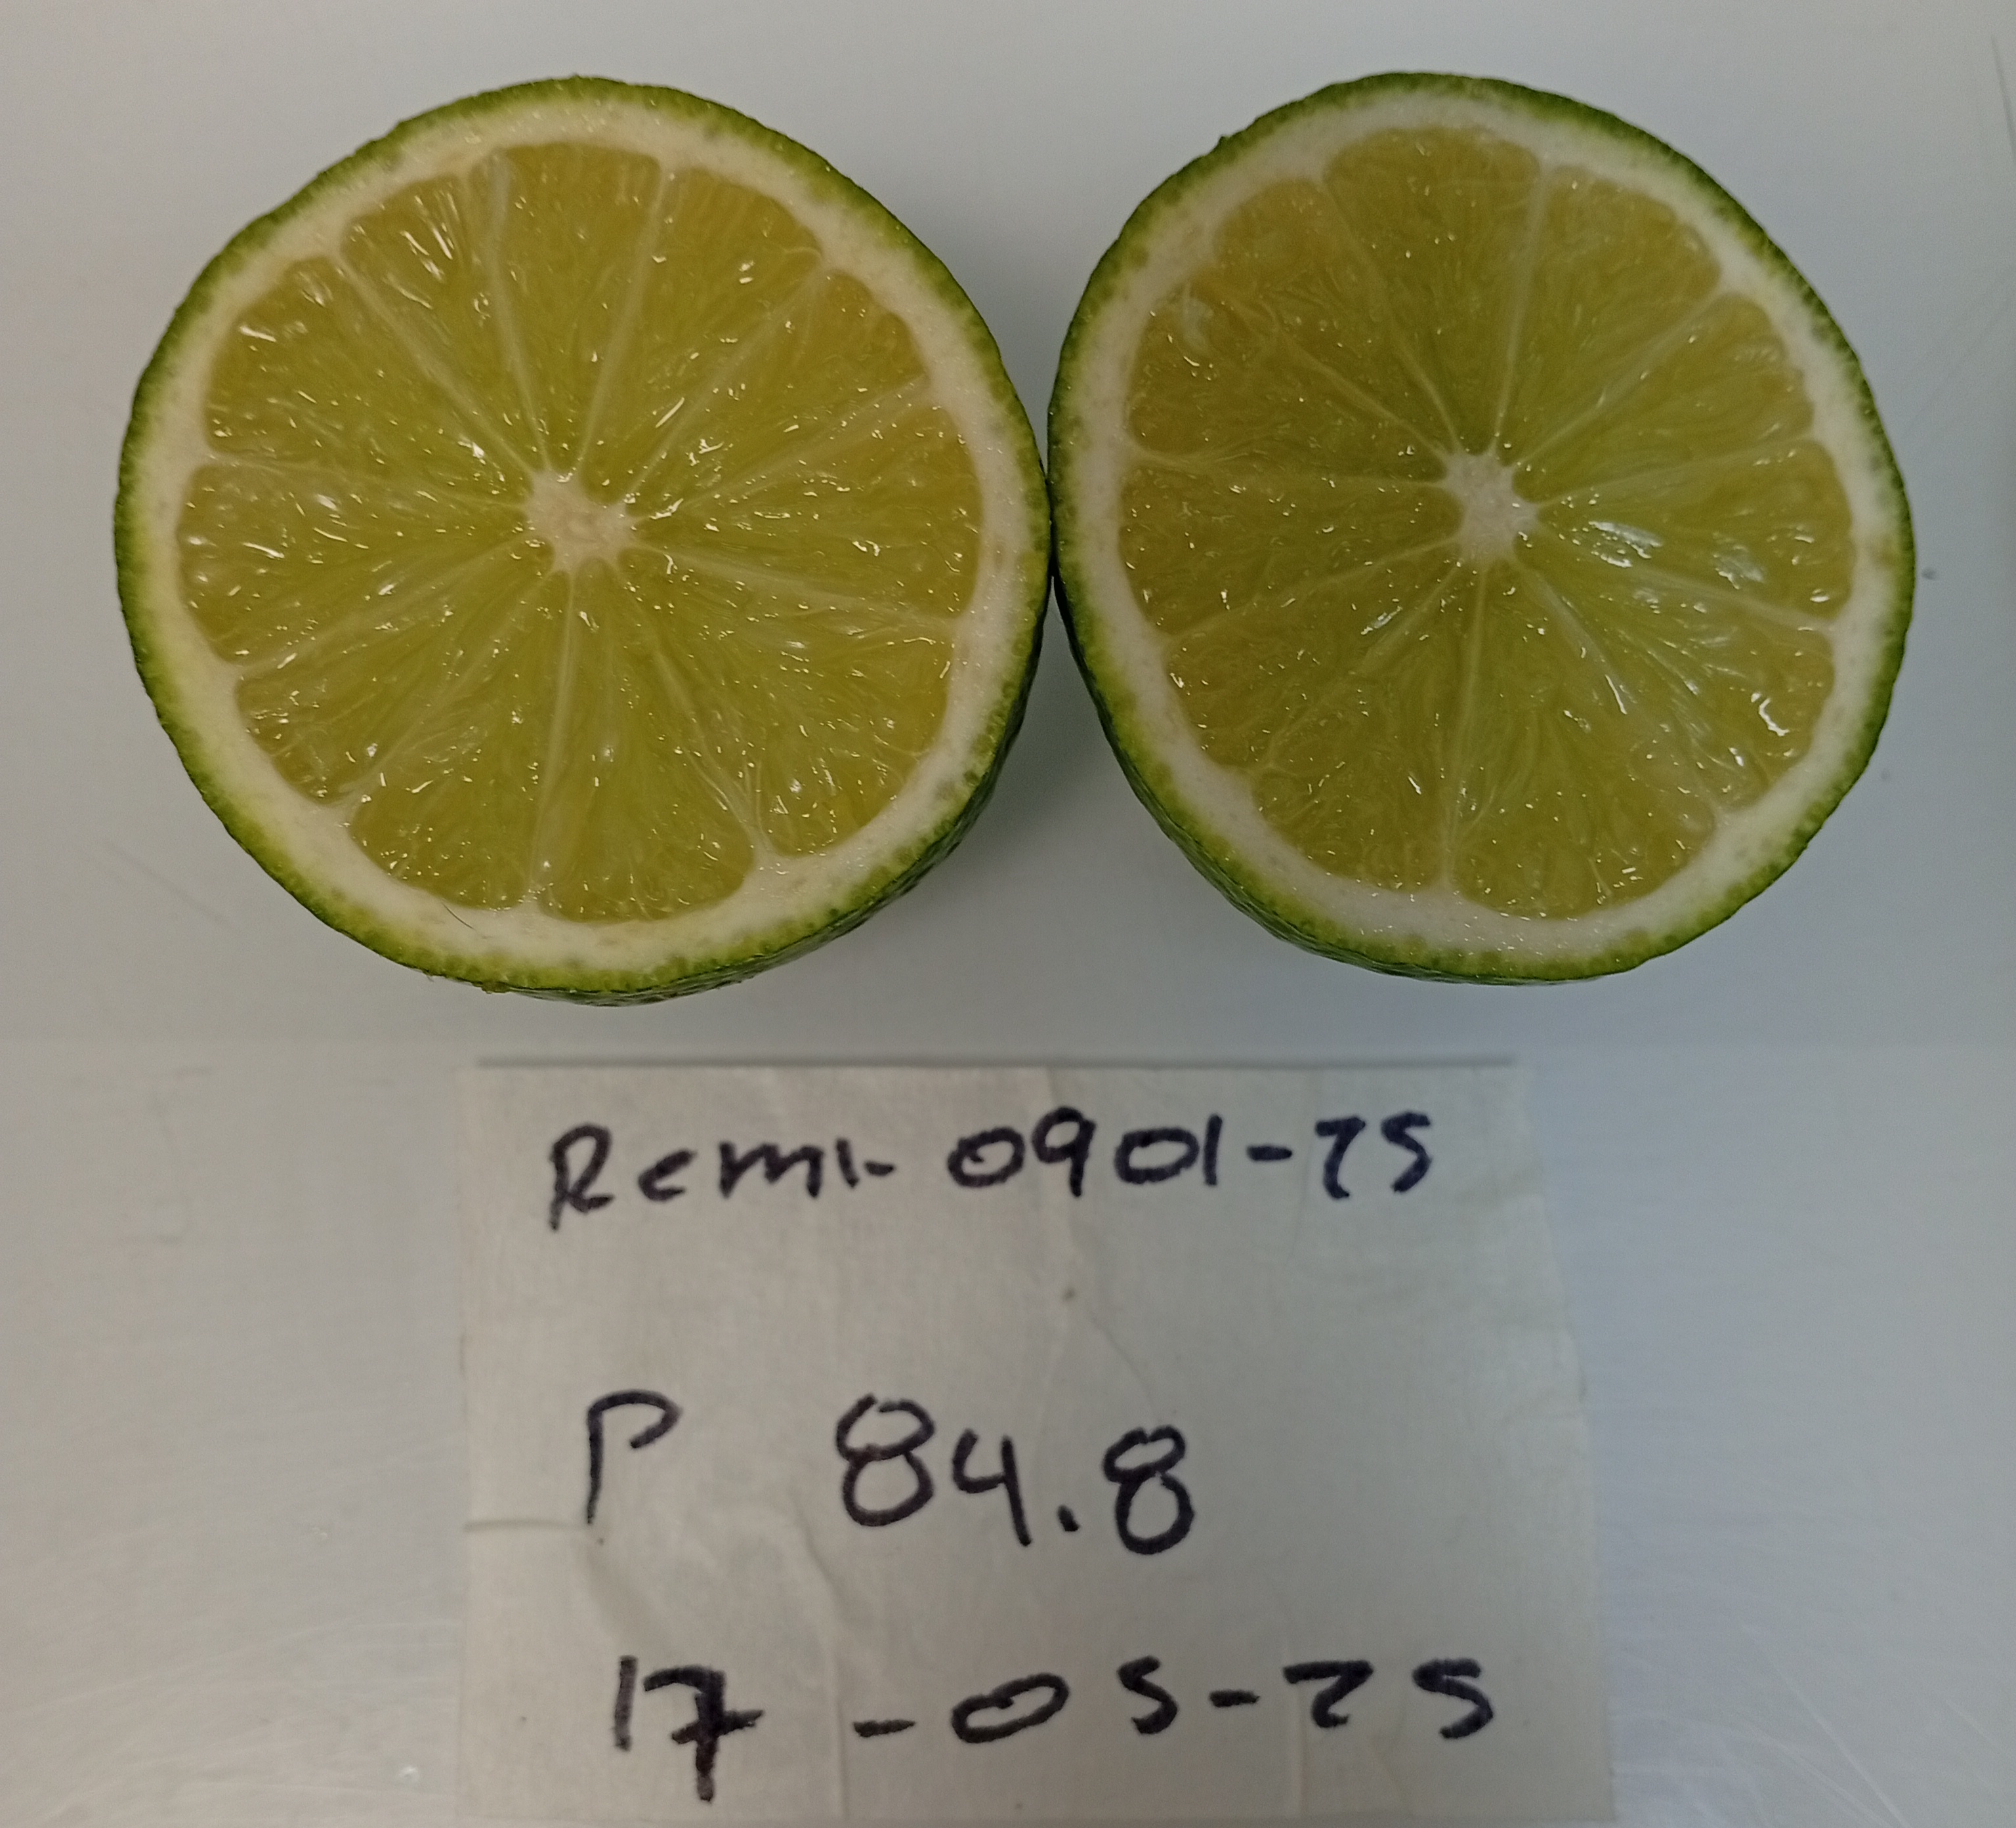 Remi- 0901-25
P 84.8
17-05-25